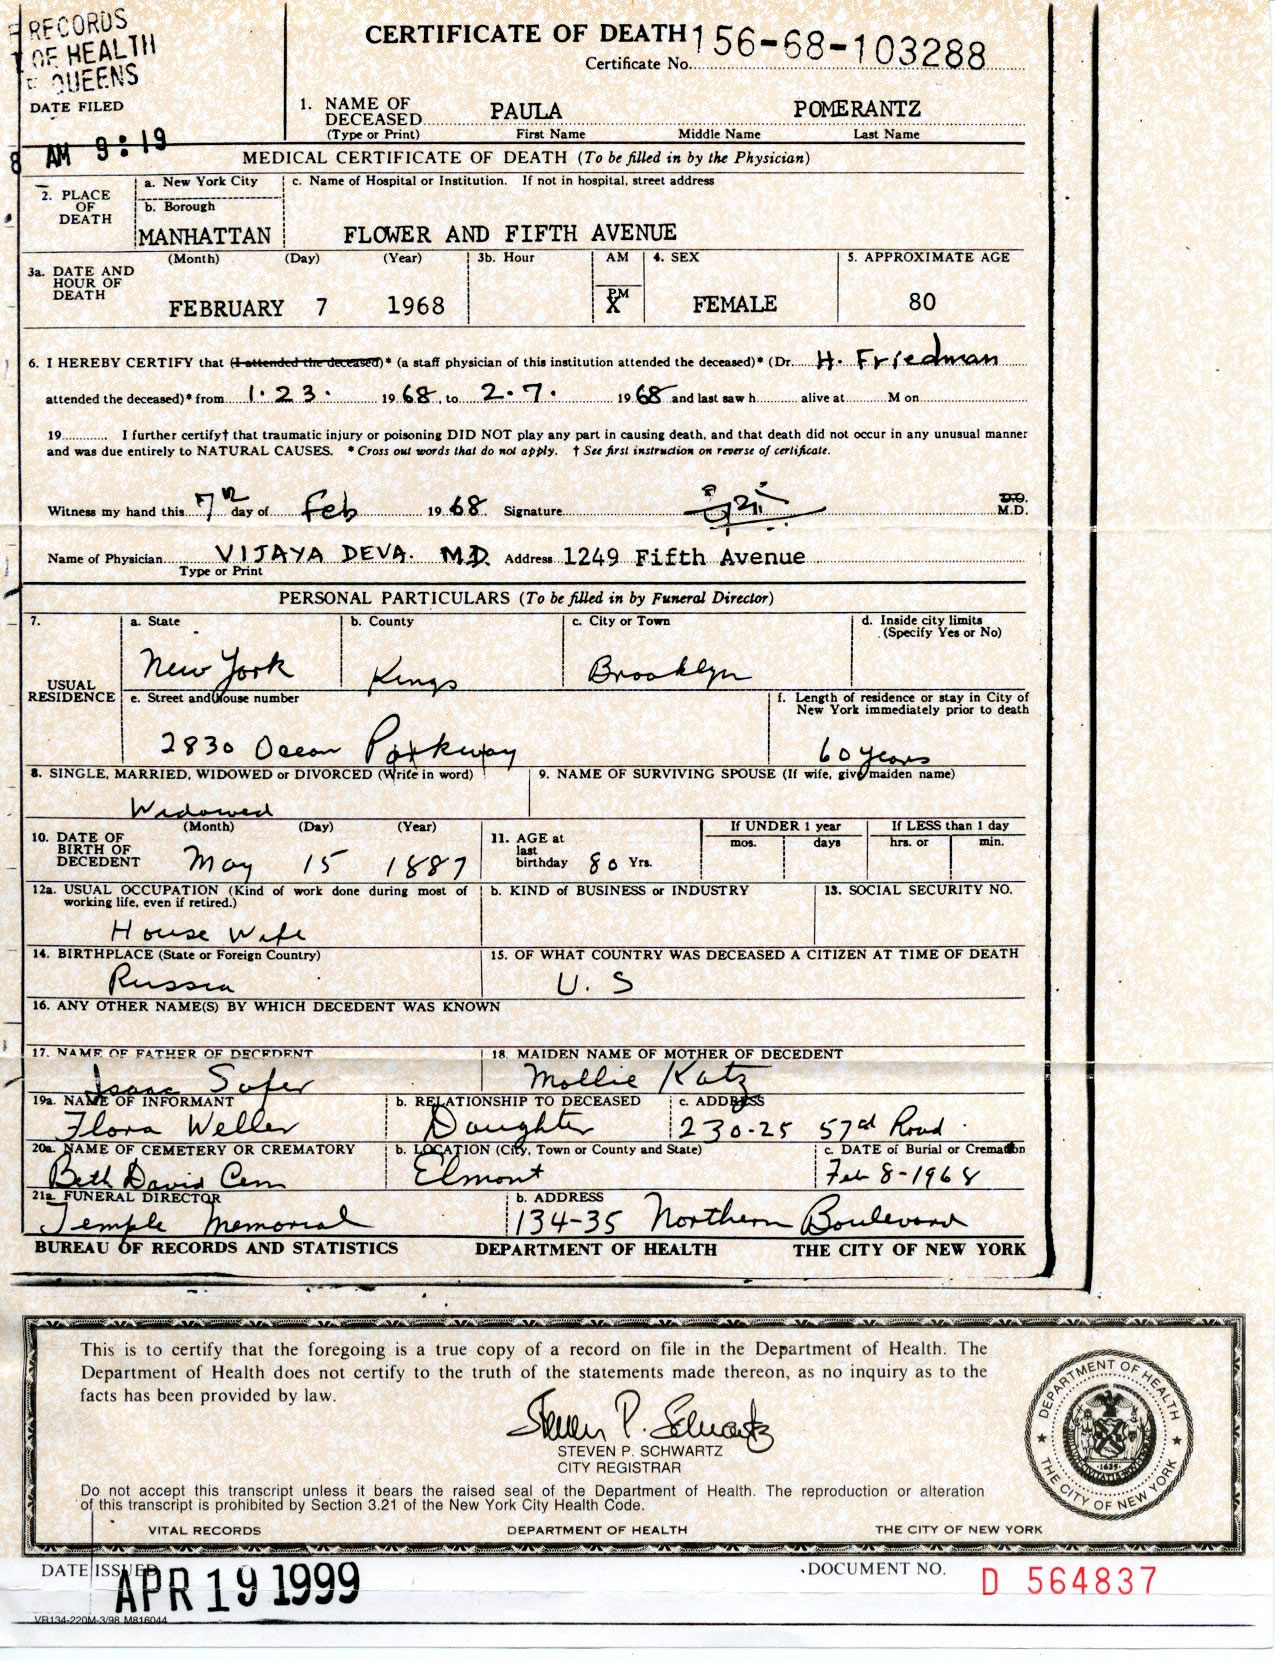 RECORDS
OF HEALTH
QUEENS
DATE FILED
AM 9:19
CERTIFICATE OF DEATH
Certificate No. 156-68-103288
1. NAME OF DECEASED PAULA POMERANTZ
(Type or Print) First Name Middle Name Last Name
MEDICAL CERTIFICATE OF DEATH (To be filled in by the Physician)
2. PLACE OF DEATH
a. New York City
b. Borough
MANHATTAN
c. Name of Hospital or Institution. If not in hospital, street address
FLOWER AND FIFTH AVENUE
3a. DATE AND HOUR OF DEATH
(Month) (Day) (Year)
FEBRUARY 7 1968
3b. Hour
AM
PM
X
4. SEX
FEMALE
5. APPROXIMATE AGE
80
6. I HEREBY CERTIFY that (I attended the deceased)* (a staff physician of this institution attended the deceased)* (Dr. H. Friedman
attended the deceased)* from 1.23. 1968, to 2.7. 1968 and last saw h alive at M on
19 I further certify† that traumatic injury or poisoning DID NOT play any part in causing death, and that death did not occur in any unusual manner
and was due entirely to NATURAL CAUSES. * Cross out words that do not apply. † See first instruction on reverse of certificate.
Witness my hand this 7th day of Feb 1968 Signature D.O.
M.D.
Name of Physician VIJAYA DEVA. M.D. Address 1249 Fifth Avenue
Type or Print
PERSONAL PARTICULARS (To be filled in by Funeral Director)
7. USUAL RESIDENCE
a. State
New York
b. County
Kings
c. City or Town
Brooklyn
d. Inside city limits
(Specify Yes or No)
e. Street and House number
2830 Ocean Parkway
f. Length of residence or stay in City of
New York immediately prior to death
60 years
8. SINGLE, MARRIED, WIDOWED or DIVORCED (Write in word)
Widowed
9. NAME OF SURVIVING SPOUSE (If wife, give maiden name)
10. DATE OF BIRTH OF DECEDENT
(Month) (Day) (Year)
May 15 1887
11. AGE at last birthday 80 Yrs.
If UNDER 1 year
mos. days
If LESS than 1 day
hrs. or min.
12a. USUAL OCCUPATION (Kind of work done during most of
working life, even if retired.)
House Wife
b. KIND of BUSINESS or INDUSTRY
13. SOCIAL SECURITY NO.
14. BIRTHPLACE (State or Foreign Country)
Russia
15. OF WHAT COUNTRY WAS DECEASED A CITIZEN AT TIME OF DEATH
U.S
16. ANY OTHER NAME(S) BY WHICH DECEDENT WAS KNOWN
17. NAME OF FATHER OF DECEDENT
Isaac Safer
18. MAIDEN NAME OF MOTHER OF DECEDENT
Mollie Katz
19a. NAME OF INFORMANT
Flora Weller
b. RELATIONSHIP TO DECEASED
Daughter
c. ADDRESS
230-25 57rd Road
20a. NAME OF CEMETERY OR CREMATORY
Beth David Cem
b. LOCATION (City, Town or County and State)
Elmont
c. DATE of Burial or Cremation
Feb 8-1968
21a. FUNERAL DIRECTOR
Temple Memorial
b. ADDRESS
134-35 Northern Boulevard
BUREAU OF RECORDS AND STATISTICS DEPARTMENT OF HEALTH THE CITY OF NEW YORK
This is to certify that the foregoing is a true copy of a record on file in the Department of Health. The
Department of Health does not certify to the truth of the statements made thereon, as no inquiry as to the
facts has been provided by law.
Steven P. Schwartz
STEVEN P. SCHWARTZ
CITY REGISTRAR
Do not accept this transcript unless it bears the raised seal of the Department of Health. The reproduction or alteration
of this transcript is prohibited by Section 3.21 of the New York City Health Code.
VITAL RECORDS DEPARTMENT OF HEALTH THE CITY OF NEW YORK
DEPARTMENT OF HEALTH
THE CITY OF NEW YORK
DATE ISSUED APR 19 1999
DOCUMENT NO. D 564837
VR134-220M-3/98 M816044